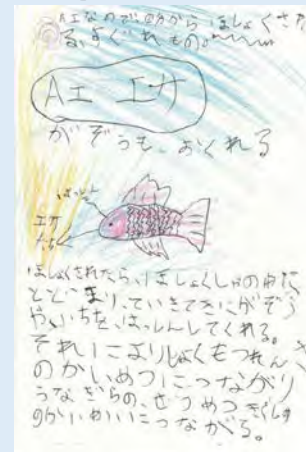 AIなので自分から ほしょくさ
る、すぐれもの。
AI エサ
がぞうも、おくれる
エサ
ほしょくされたら、ほしょくしゃの中に
とどまり、ていきてきにがぞう
や、いちを、はっしんしてくれる。
それによりしょくもつれんさ
のかいめつにつながり
うなぎらの、せつめつきぐしゅ
のかいめいにつながる。